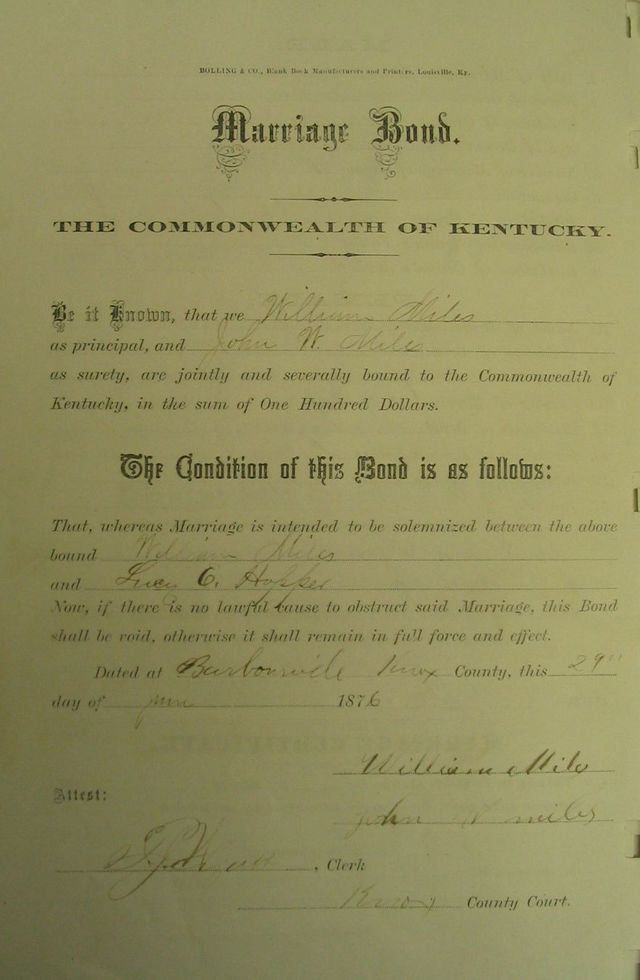 BOLLING & CO., Blank Book Manufacturers and Printers, Louisville, Ky.
Marriage Bond.
THE COMMONWEALTH OF KENTUCKY.
Be it Known, that we William Miles
as principal, and John W. Miles
as surety, are jointly and severally bound to the Commonwealth of
Kentucky, in the sum of One Hundred Dollars.
The Condition of this Bond is as follows:
That, whereas Marriage is intended to be solemnized between the above
bound William Miles
and Lucy C. Hopper
Now, if there is no lawful cause to obstruct said Marriage, this Bond
shall be void, otherwise it shall remain in full force and effect.
Dated at Barbourville Knox County, this 29"
day of June 1876
William Miles
Attest:
John W miles
, Clerk
Knox County Court.